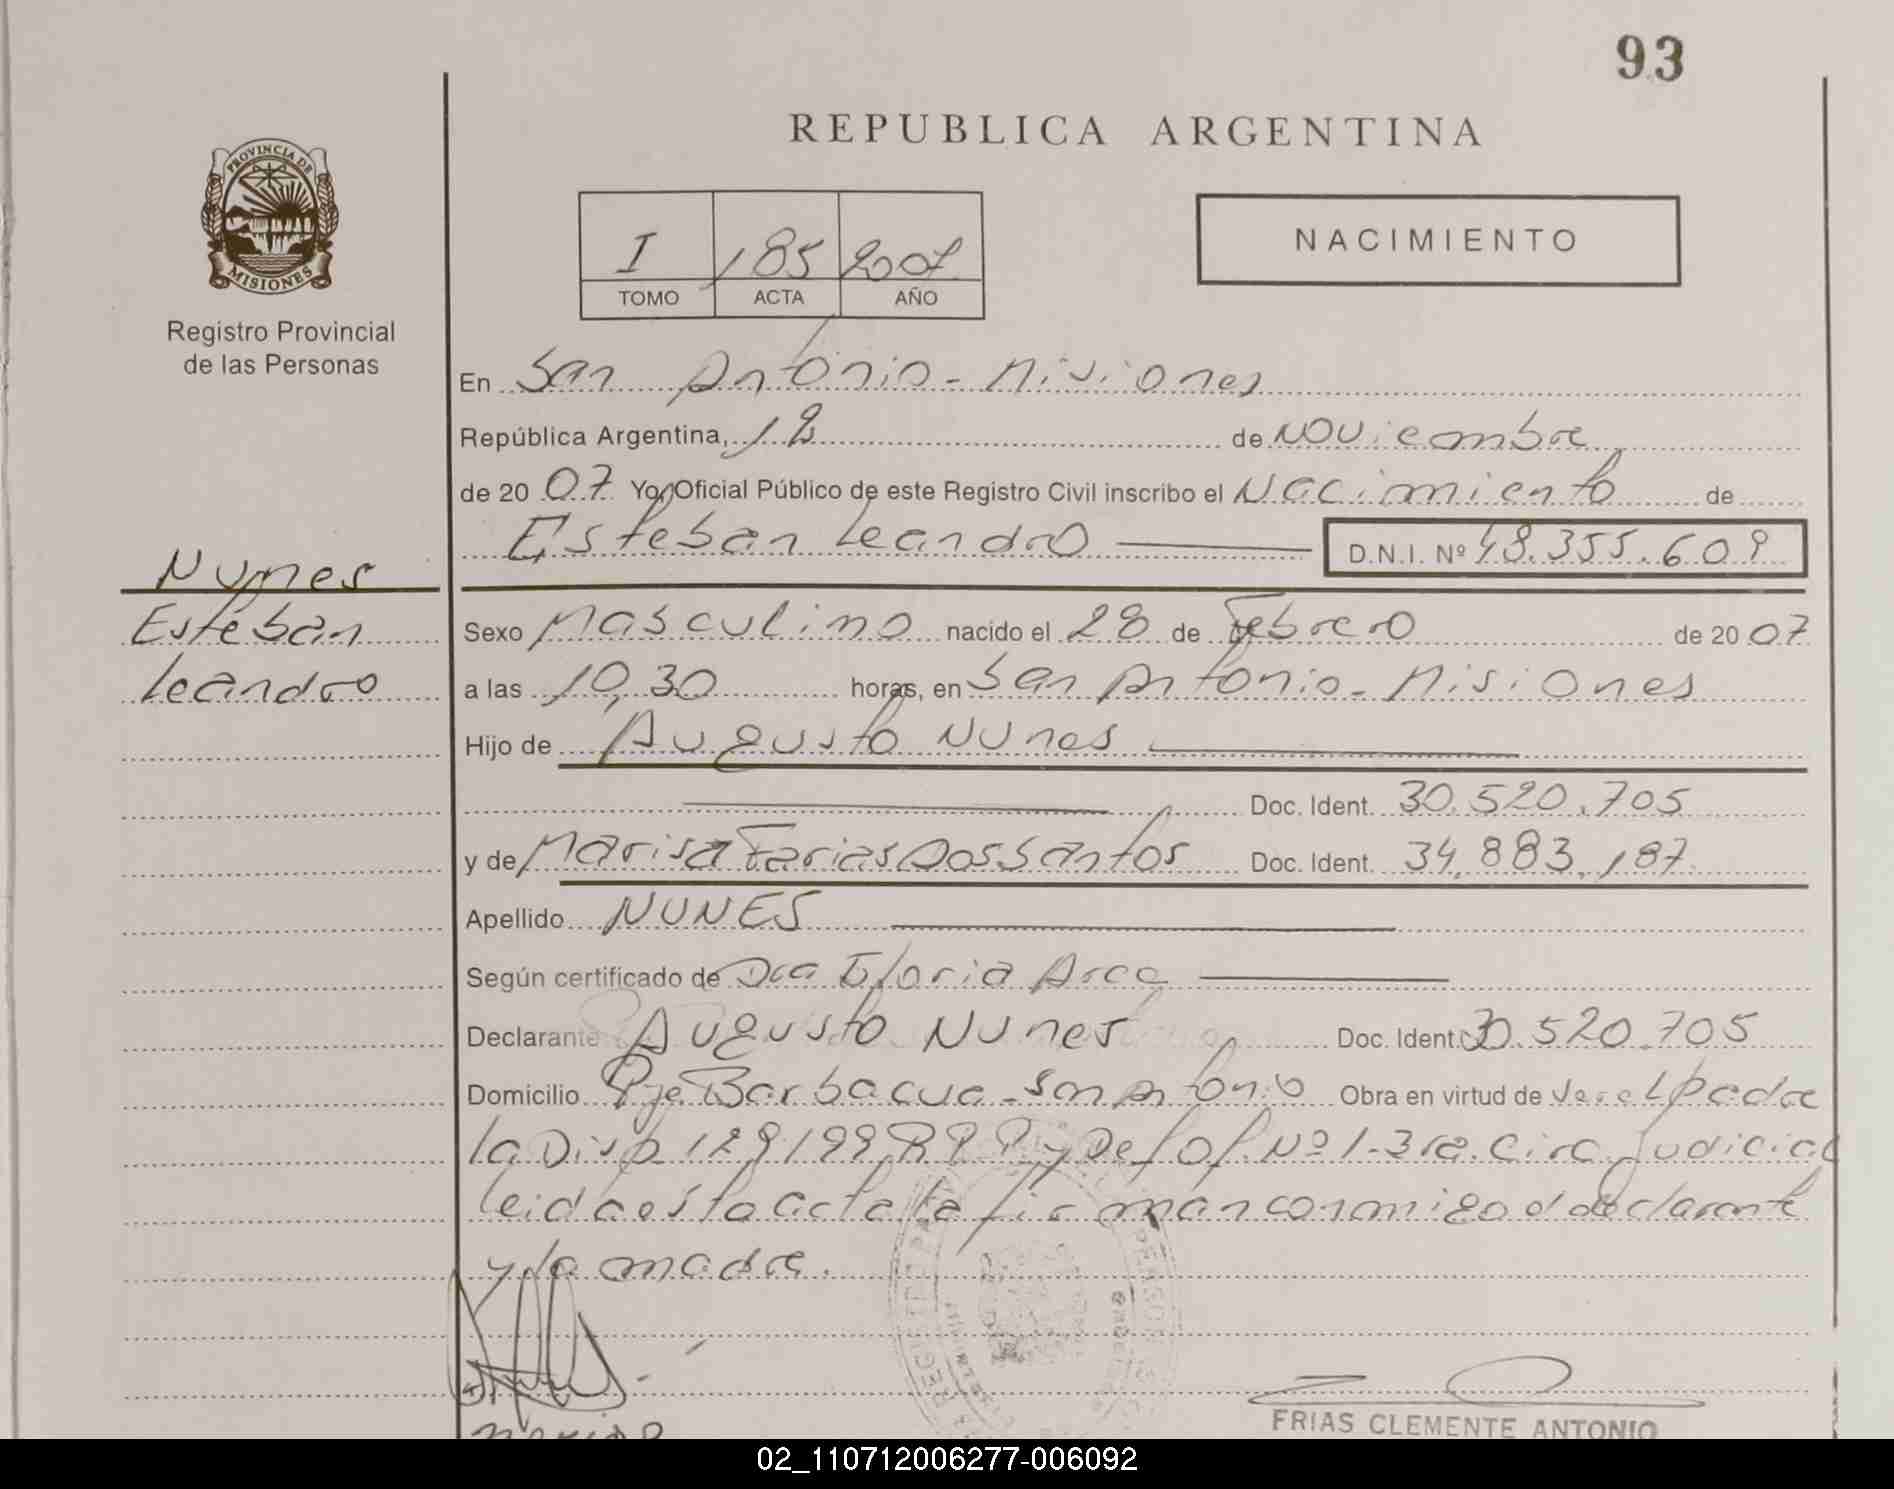 93
REPUBLICA ARGENTINA
PROVINCIA DE
MISIONES
Registro Provincial
de las Personas
I 185 2007
TOMO ACTA AÑO
NACIMIENTO
En San Antonio - Misiones
República Argentina, 12 de Noviembre
de 20 07 Yo, Oficial Público de este Registro Civil inscribo el Nacimiento de
Esteban Leandro D.N.I. Nº 48.355.609
Nunes
Esteban
Leandro
Sexo Masculino nacido el 28 de Febrero de 20 07
a las 10,30 horas, en San Antonio - Misiones
Hijo de Augusto Nunes
Doc. Ident. 30.520.705
y de Marisa Farias Dos Santos Doc. Ident. 34.883.187
Apellido NUNES
Según certificado de Dra Gloria Arce
Declarante Augusto Nunes Doc. Ident. 30.520.705
Domicilio Pje Barbacua - San Antonio Obra en virtud de ser el padre
la Disp 129/99 y Def of. Nº 1-3ra. Circ. Judicial
leida esta acta la firman conmigo el declarante
y la madre.
FRIAS CLEMENTE ANTONIO
02_110712006277-006092